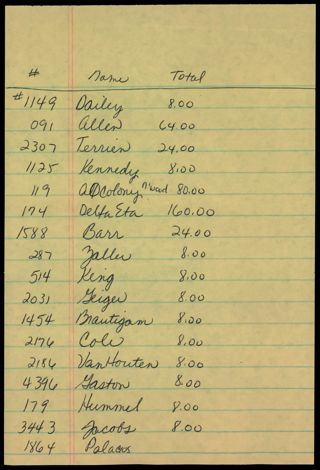 # Name Total
#1149 Dailey 8.00
091 Allen 64.00
2307 Terrien 24.00
1125 Kennedy 8.00
119 colony 80.00
174 Delta Eta 160.00
1588 Barr 24.00
287 Zaller 8.00
514 King 8.00
2031 Geiger 8.00
1454 Brautigam 8.00
2176 Cole 8.00
2186 VanHouten 8.00
4396 Gaston 8.00
179 Hummel 8.00
3443 Jacobs 8.00
1864